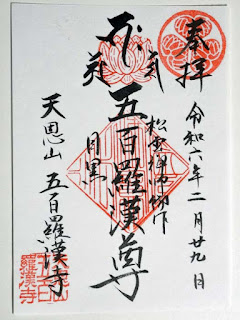 奉拝
令和六年二月廿九日
松雲禅師御作
五百羅漢尊
目黒
天恩山 五百羅漢寺